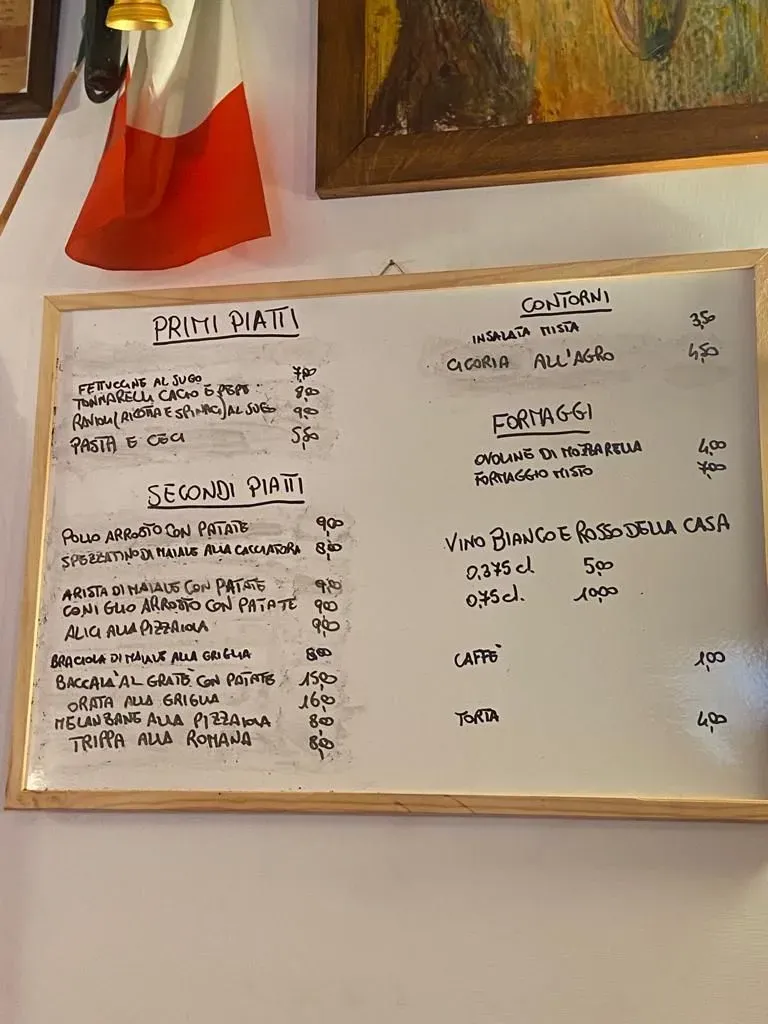 PRIMI PIATTI
FETTUCCINE AL SUGO 7,00
TONNARELLI CACIO E PEPE 8,00
RAVIOLI (RICOTTA E SPINACI) AL SUGO 9,00
PASTA E CECI 5,50
SECONDI PIATTI
POLLO ARROSTO CON PATATE 9,00
SPEZZATINO DI MAIALE ALLA CACCIATORA 8,00
ARISTA DI MAIALE CON PATATE 9,00
CONIGLIO ARROSTO CON PATATE 9,00
ALICI ALLA PIZZAIOLA 9,00
BRACIOLA DI MAIALE ALLA GRIGLIA 8,00
BACCALA' AL GRATE' CON PATATE 15,00
ORATA ALLA GRIGLIA 16,00
MELANZANE ALLA PIZZAIOLA 8,00
TRIPPA ALLA ROMANA 8,00
CONTORNI
INSALATA MISTA 3,50
CICORIA ALL'AGRO 4,50
FORMAGGI
OVOLINE DI MOZZARELLA 4,00
FORMAGGIO MISTO 7,00
VINO BIANCO E ROSSO DELLA CASA
0,375 cl 5,00
0,75 cl. 10,00
CAFFE' 1,00
TORTA 4,00